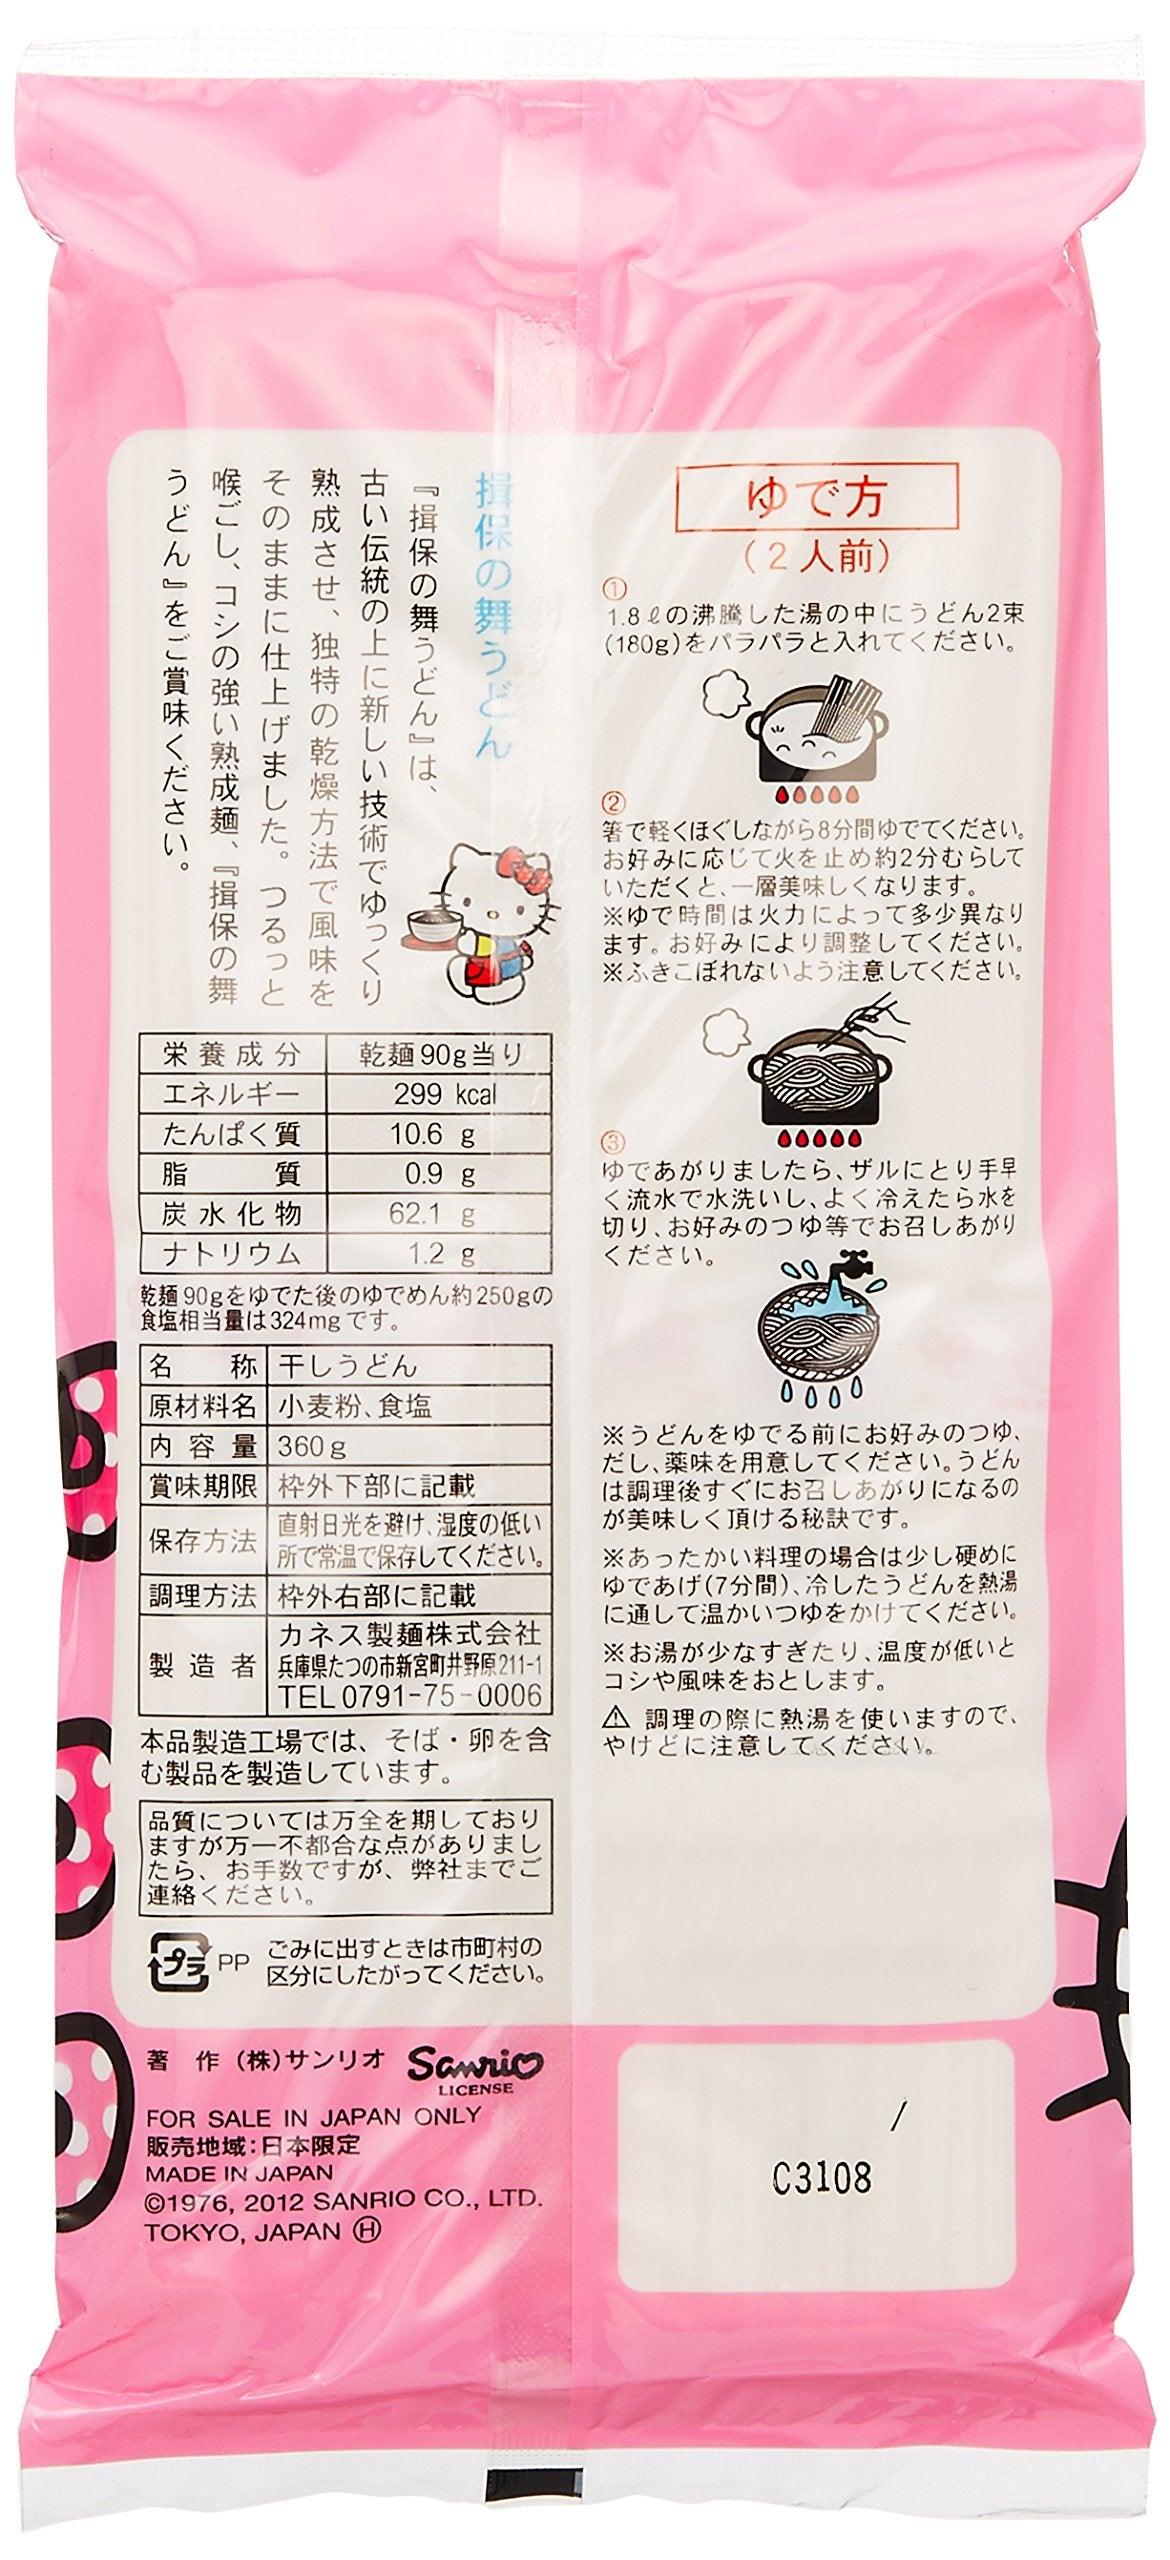 揖保の舞うどん
『揖保の舞うどん』は、
古い伝統の上に新しい技術でゆっくり
熟成させ、独特の乾燥方法で風味を
そのままに仕上げました。つるっと
喉ごし、コシの強い熟成麺、『揖保の舞
うどん』をご賞味ください。
栄養成分 乾麺90g当り
エネルギー 299 kcal
たんぱく質 10.6 g
脂質 0.9 g
炭水化物 62.1 g
ナトリウム 1.2 g
乾麺90gをゆでた後のゆでめん約250gの
食塩相当量は324mgです。
名称 干しうどん
原材料名 小麦粉、食塩
内容量 360g
賞味期限 枠外下部に記載
保存方法 直射日光を避け、湿度の低い
所で常温で保存してください。
調理方法 枠外右部に記載
製造者 カネス製麺株式会社
兵庫県たつの市新宮町井野原211-1
TEL0791-75-0006
本品製造工場では、そば・卵を含
む製品を製造しています。
品質については万全を期しており
ますが万一不都合な点がありまし
たら、お手数ですが、弊社までご
連絡ください。
プラ PP ごみに出すときは市町村の
区分にしたがってください。
著作(株)サンリオ Sanrio
LICENSE
FOR SALE IN JAPAN ONLY
販売地域:日本限定
MADE IN JAPAN
©1976, 2012 SANRIO CO., LTD.
TOKYO, JAPAN Ⓗ
ゆで方
(2人前)
①
1.8ℓの沸騰した湯の中にうどん2束
(180g)をパラパラと入れてください。
②
箸で軽くほぐしながら8分間ゆでてください。
お好みに応じて火を止め約2分むらして
いただくと、一層美味しくなります。
※ゆで時間は火力によって多少異なり
ます。お好みにより調整してください。
※ふきこぼれないよう注意してください。
③
ゆであがりましたら、ザルにとり手早
く流水で水洗いし、よく冷えたら水を
切り、お好みのつゆ等でお召しあがり
ください。
※うどんをゆでる前にお好みのつゆ、
だし、薬味を用意してください。うどん
は調理後すぐにお召しあがりになるの
が美味しく頂ける秘訣です。
※あったかい料理の場合は少し硬めに
ゆであげ(7分間)、冷したうどんを熱湯
に通して温かいつゆをかけてください。
※お湯が少なすぎたり、温度が低いと
コシや風味をおとします。
⚠ 調理の際に熱湯を使いますので、
やけどに注意してください。
/
C3108